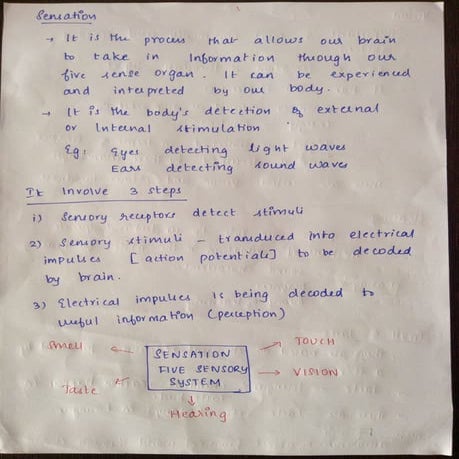 Sensation
→ It is the process that allows our brain
to take in Information through our
five sense organ. It can be experienced
and interpreted by our body.
→ It is the body's detection of external
or Internal stimulation
Eg: Eyes detecting light waves
Ears detecting sound waves
It Involve 3 steps
i) Sensory receptors detect stimuli
2) Sensory stimuli – transduced into electrical
impulses [action potentials] to be decoded
by brain.
3) Electrical impulses is being decoded to
useful information (perception)
Smell
TOUCH
SENSATION
FIVE SENSORY
SYSTEM
VISION
Taste
Hearing